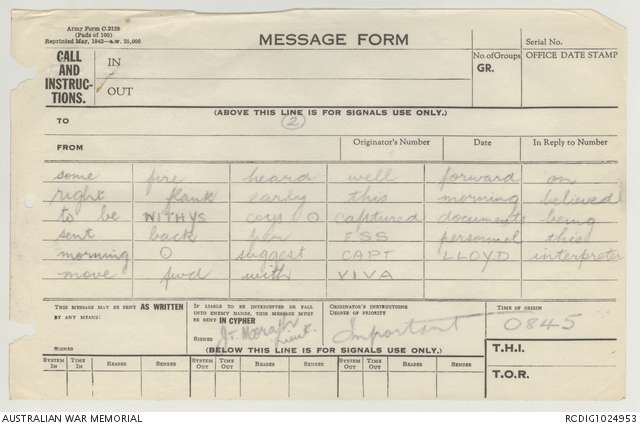 Army Form C.2128
(Pads of 100)
Reprinted May, 1942—a.w. 25,000
MESSAGE FORM
Serial No.
CALL AND INSTRUCTIONS.
IN
OUT
No. of Groups
GR.
OFFICE DATE STAMP
(ABOVE THIS LINE IS FOR SIGNALS USE ONLY.)
TO
2
FROM
Originator's Number
Date
In Reply to Number
some fire heard well forward on
right flank early this morning believed
to be WITHYS coys O captured documents being
sent back per FSS personnel this
morning O suggest CAPT LLOYD interpreter
move fwd with VIVA
THIS MESSAGE MAY BE SENT AS WRITTEN BY ANY MEANS:
SIGNED
IF LIABLE TO BE INTERCEPTED OR FALL INTO ENEMY HANDS, THIS MESSAGE MUST BE SENT IN CYPHER
SIGNED
Lieut.
ORIGINATOR'S INSTRUCTIONS
DEGREE OF PRIORITY
Important
TIME OF ORIGIN
0845
(BELOW THIS LINE IS FOR SIGNALS USE ONLY.)
T.H.I.
T.O.R.
SYSTEM IN
TIME IN
READER
SENDER
SYSTEM OUT
TIME OUT
READER
SENDER
SYSTEM OUT
TIME OUT
READER
SENDER
AUSTRALIAN WAR MEMORIAL
RCDIG1024953